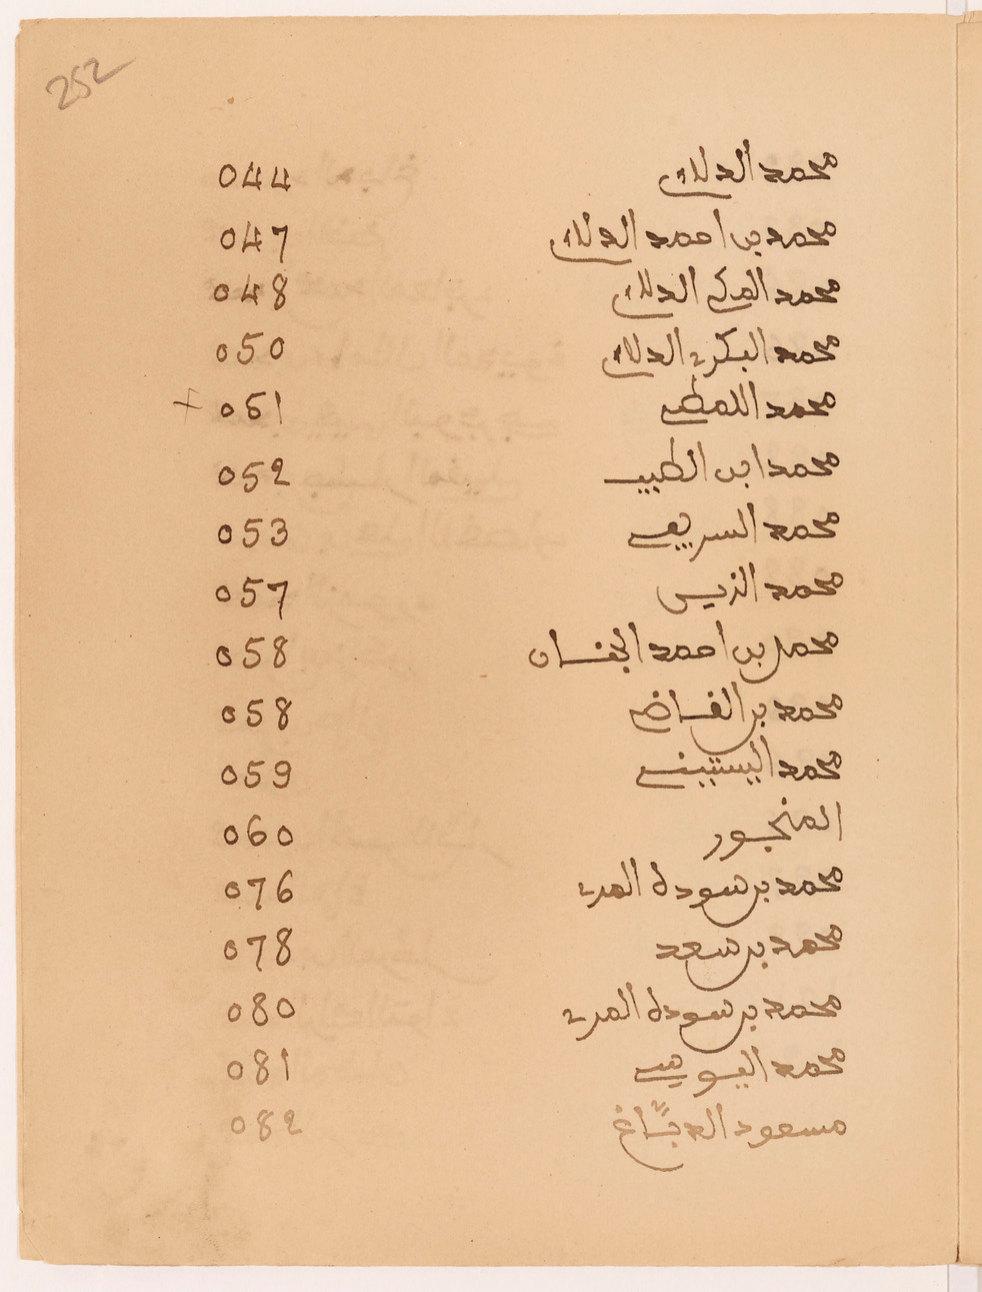 252
محمد الدلائي 044
محمد بن احمد الدلائي 047
محمد المكي الدلائي 048
محمد البكري الدلائي 050
محمد اللمطي 051 +
محمد ابن الطيب 052
محمد السريفي 053
محمد الزيس 057
محمد بن احمد 058
محمد بن القاضي 058
محمد اليستيني 059
المنجور 060
محمد بن سودة المري 076
محمد بن سعد 078
محمد بن سودة المري 080
محمد اليوسي 081
مسعود الدبّاغ 082